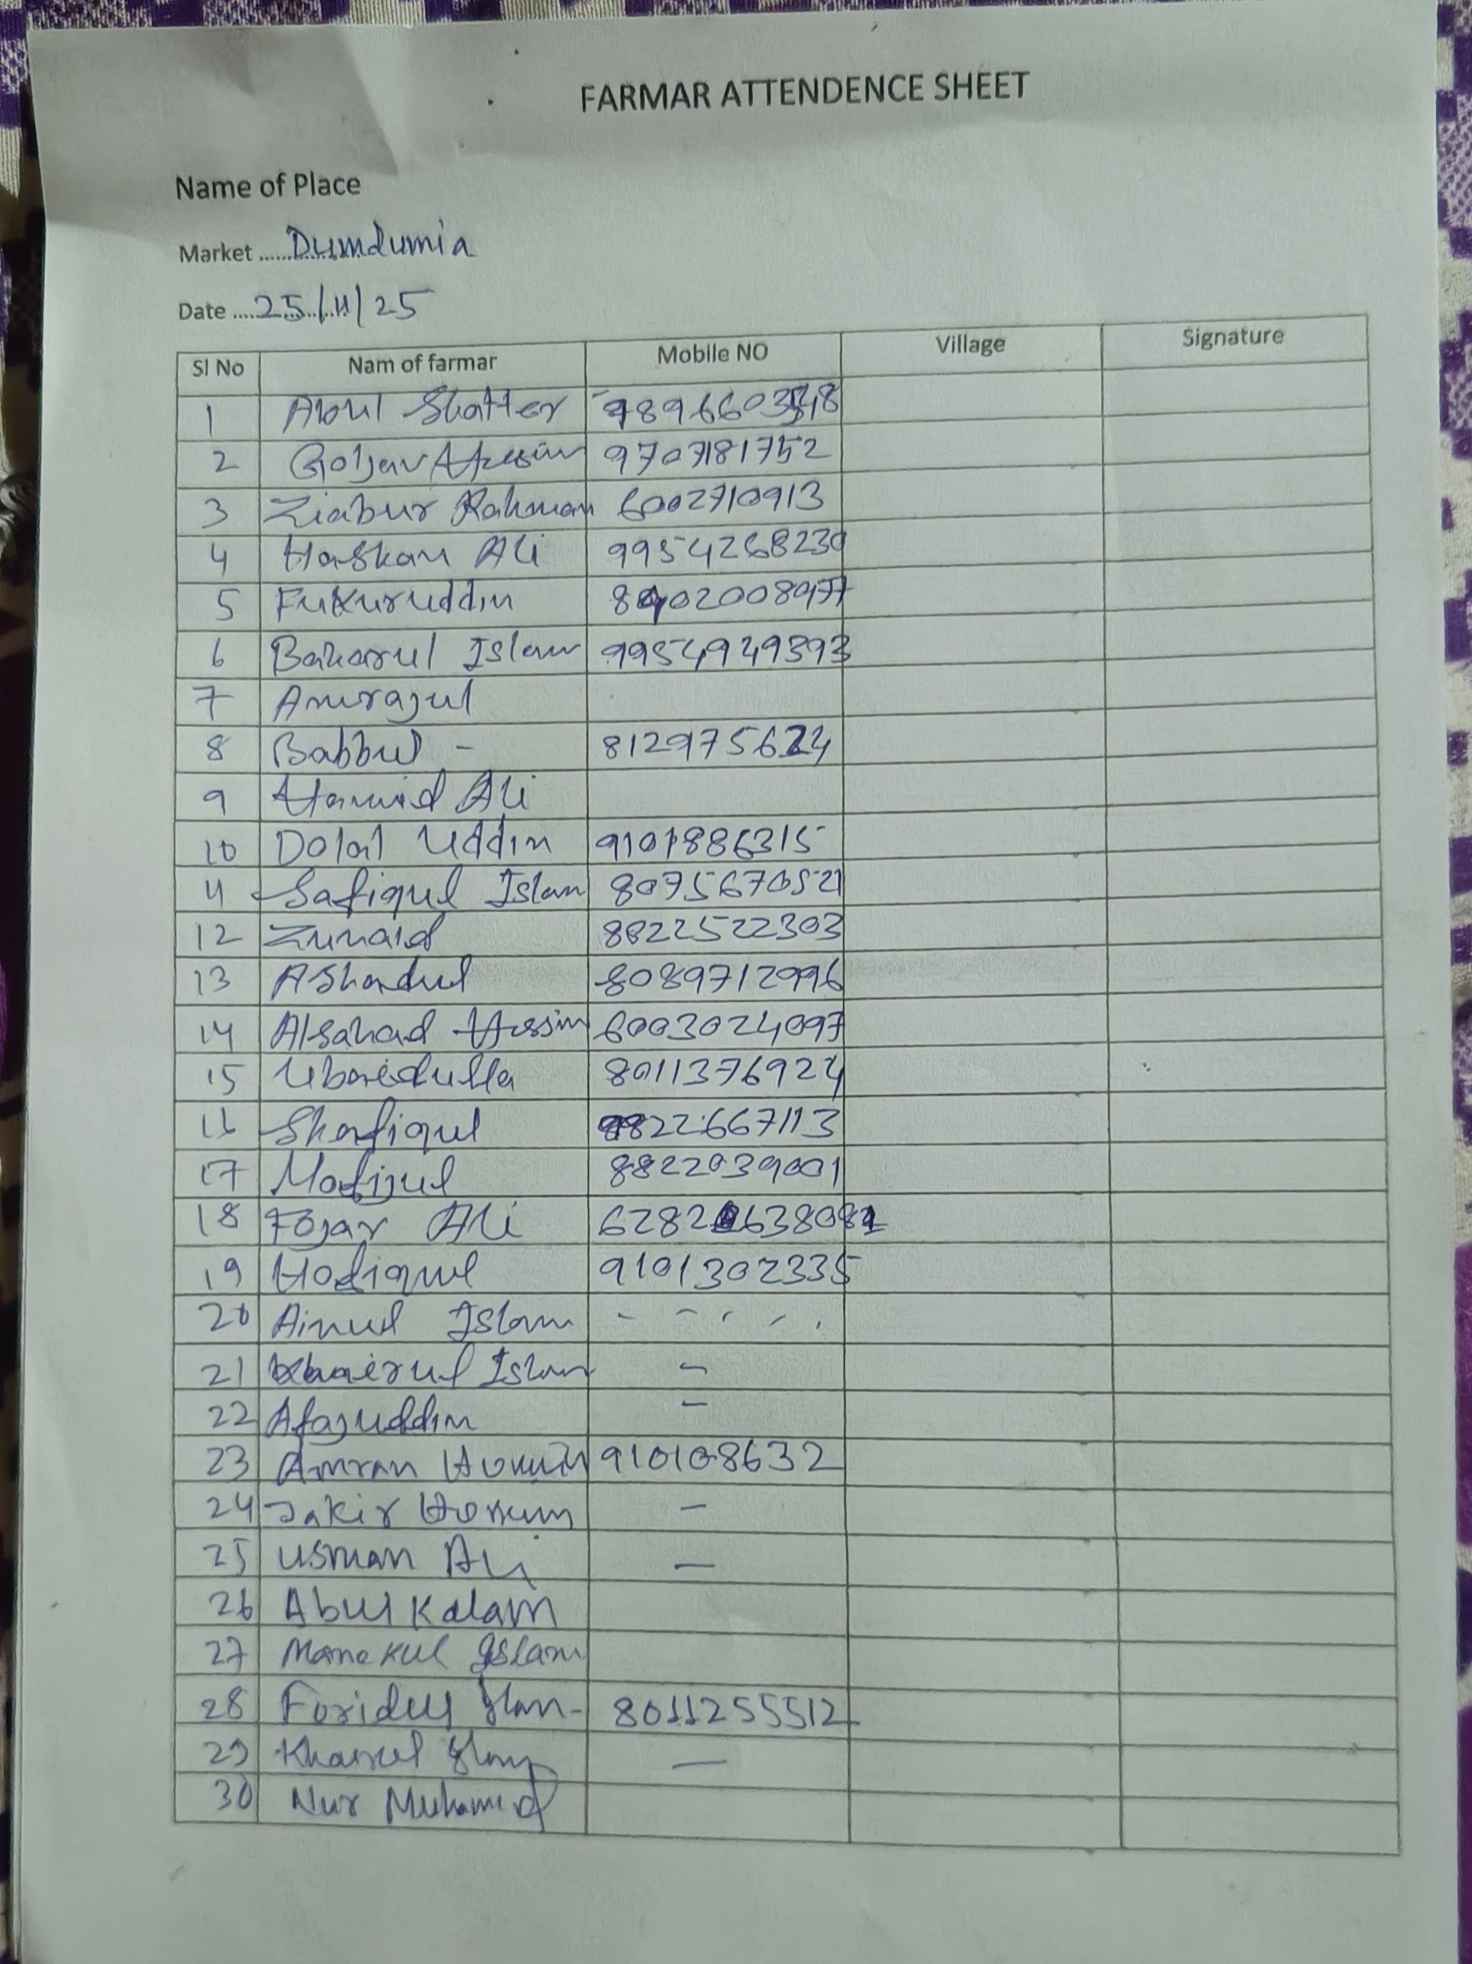 FARMAR ATTENDENCE SHEET
Name of Place
Market ......Dumdumia
Date ....25/11/25
Sl No Nam of farmar Mobile NO Village Signature
1 Abul
2 9707181752
3 Ziabur Rahman 6002710913
4 Haskan Ali 9954268230
5 Fukuruddin
6 Baharul Islam 9954949393
7 Amirajul
8 Babbul - 8129756224
9 Hamid Ali
10 Dolal Uddin 9101886315
11 Safiqul Islam 8075670521
12 Zunaid 8822522303
13 AShadul 8089712996
14 Alsahad Hussin 6003024097
15 Ubaidulla 8011376924
16 Shafiqul 8822667113
17 Mofijul 8822039001
18 Fojar Ali
19 Hafiqul 9101302335
20 Ainul Islam - - - - -
21 Khairul Islam -
22 Afajuddin -
23 Amran 910108632
24 Jakir Hossain -
25 Usman Ali -
26 Abul Kalam
27 Islam
28 8011255512
29 -
30 Nur Muhamid